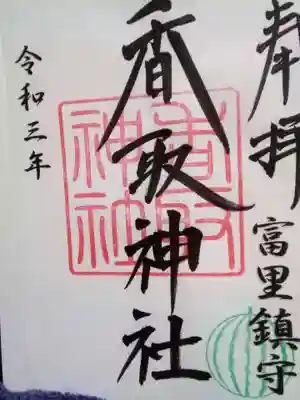 奉拝
富里鎮守
香取神社
香取神社
令和三年